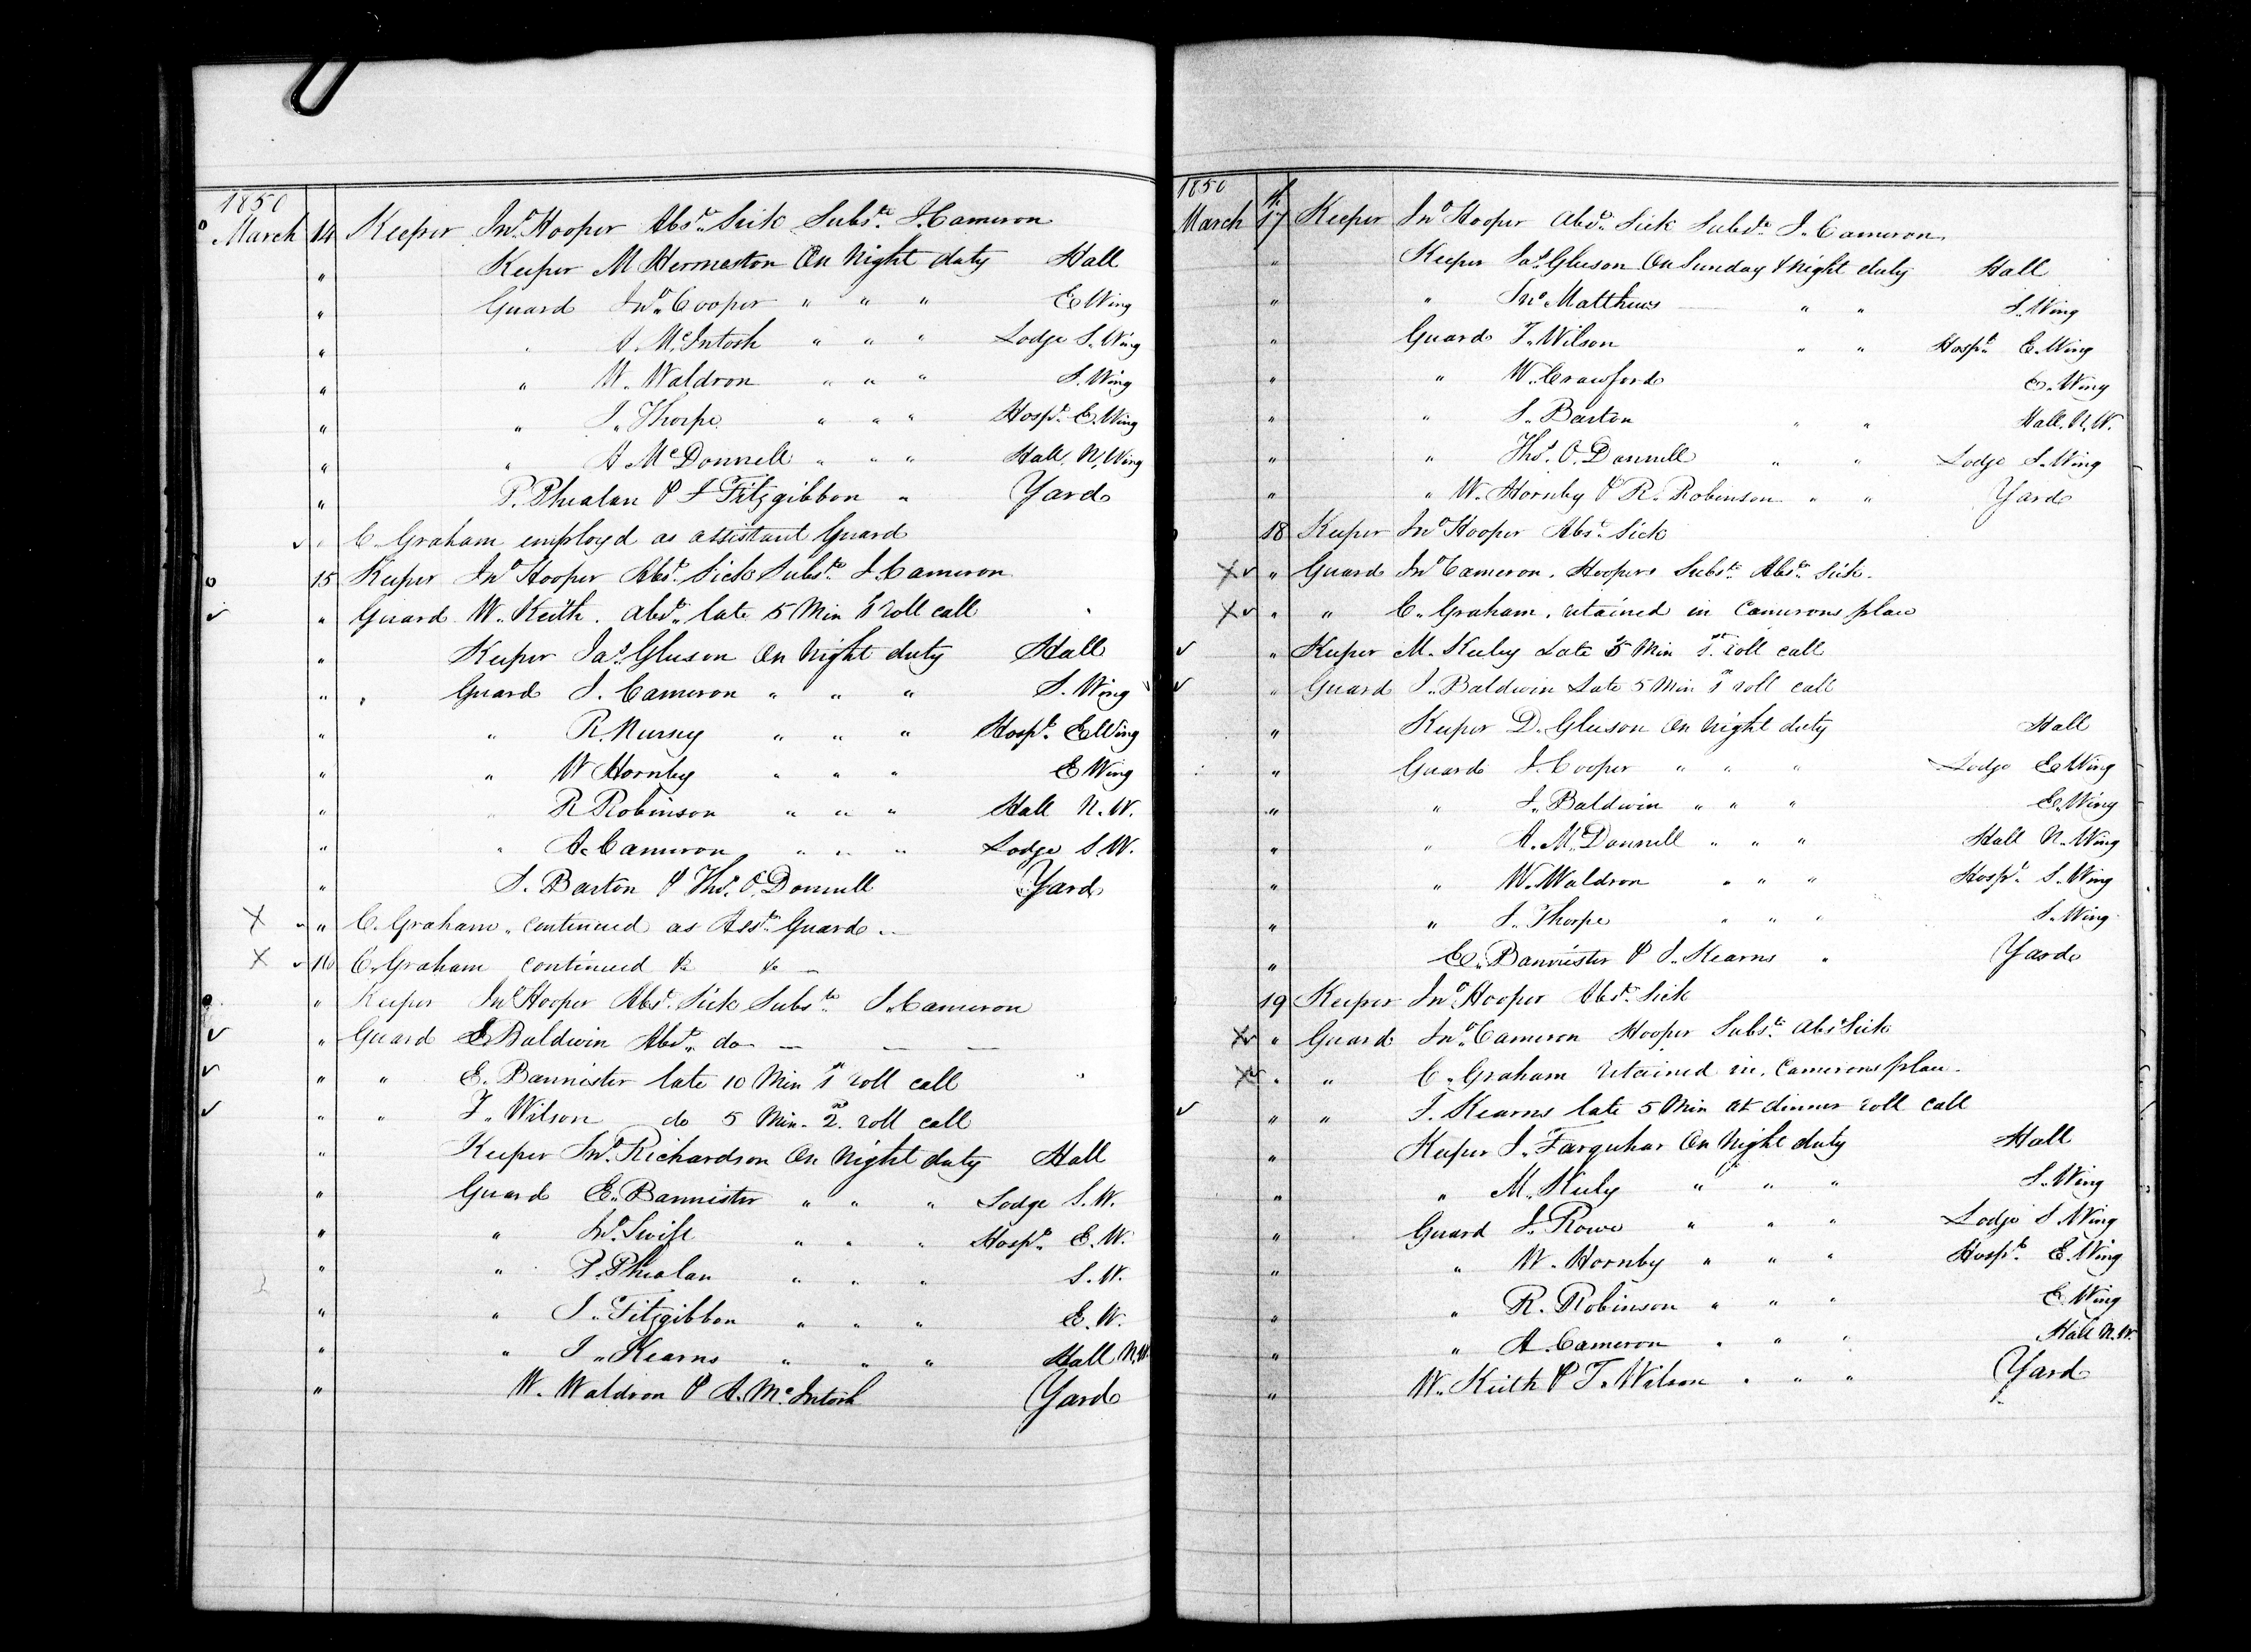 1850
March 14 Keeper Jno. Hooper Abst. Sick Subste. J. Cameron
" Keeper M Hermeston On Night duty Hall
" Guard Jno. Cooper " " " E Wing
" " A. McIntosh " " " Lodge S. Wing
" " W. Waldron " " " S. Wing
" " J. Thorpe " " " Hospl. E. Wing
" " A McDonnell " " " Hall, N. Wing
" P. Phealan & J Fitzgibbon " Yard
" C. Graham employd as assistant Guard
15 Keeper Jno. Hooper Abst. Sick Subste. J. Cameron
" Guard W. Keith. Absd. late 5 Min 1st roll call
" Keeper Jas. Gleeson On Night duty Hall
" Guard J. Cameron " " " S. Wing
" " R. Nursey " " " Hospl. E Wing
" " W Hornby " " " E Wing
" " R Robinson " " " Hall N. W.
" " A. Cameron " " " Lodge S. W.
" S. Barton & Ths. O. Donnell Yard
X " C. Graham, continued as Asst. Guard
X 16 C. Graham continued do do
" Keeper Jno. Hooper Abst. Sick Subste. J. Cameron
" Guard E Baldwin Absd. do
" " E. Bannister late 10 Min 1st roll call
" " T. Wilson do 5 Min. 2nd roll call
" Keeper Jno. Richardson On Night duty Hall
" Guard E. Bannister " " " Lodge S. W.
" " Jno. Swift " " " Hospl. E. W.
" " P. Phealan " " " S. W.
" " J. Fitzgibbon " " " E. W.
" " J. Kearns " " " Hall N.W.
" W. Waldron & A. McIntosh Yard
1850
March 17th Keeper Jno. Hooper Absd. Sick Subste. J. Cameron
" Keeper Jas. Gleeson On Sunday & Night duty Hall
" " Jno. Matthews " " S. Wing
" Guard T. Wilson " " Hospl. E. Wing
" " W. Crawford E. Wing
" " S. Barton " " Hall. N. W.
" " Ths. O. Donnell " " Lodge S. Wing
" " W. Hornby & R. Robinson " " Yard
18 Keeper Jno. Hooper Abst. Sick
X " Guard Jno. Cameron. Hoopers Subste. Abst. Sick.
X " " C. Graham, retained in Camerons place
" Keeper M. Keeley Late 5 Min 1st. roll call
" Guard J. Baldwin Late 5 Min 1st roll call
" Keeper D. Gleeson On Night duty Hall
" Guard J. Cooper " " " Lodge E Wing
" " J. Baldwin " " " E. Wing
" " A. McDonnell " " " Hall N. Wing
" " W. Waldron " " " Hospl. S. Wing
" " J. Thorpe " " " S. Wing
" E. Bannister & J. Kearns " Yard
19 Keeper Jno. Hooper Absd. Sick
X " Guard Jno. Cameron Hooper Subste. Abst Sick
X " " C. Graham retained in. Camerons place
" " J. Kearns late 5 Min at dinner roll call
" Keeper J. Farquhar On Night duty Hall
" " M. Keely " " " S. Wing
" Guard J. Rowe " " " Lodge S. Wing
" " W. Hornby " " " Hospl. E. Wing
" " R. Robinson " " " E. Wing
" " A. Cameron " " " Hall N.W.
" W. Keith & T. Wilson " " " Yard